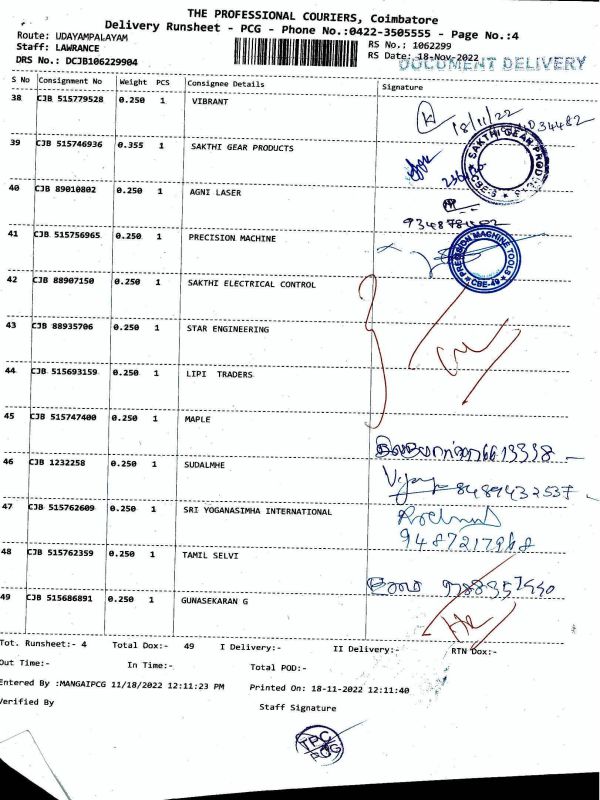 THE PROFESSIONAL COURIERS, Coimbatore
Delivery Runsheet - PCG - Phone No.:0422-3505555 - Page No.:4
Route: UDAYAMPALAYAM
RS No.: 1062299
Staff: LAWRANCE
RS Date: 18-Nov-2022
DRS No.: DCJB106229904
DOCUMENT DELIVERY
S No Consignment No Weight PCS Consignee Details Signature
38 CJB 515779528 0.250 1 VIBRANT
18/11/22
39 CJB 515746936 0.355 1 SAKTHI GEAR PRODUCTS
SAKTHI GEAR PRODU
CBE-6
40 CJB 89010802 0.250 1 AGNI LASER
41 CJB 515756965 0.250 1 PRECISION MACHINE
PRECISION MACHINE TOOLS
CBE-49
42 CJB 88907150 0.250 1 SAKTHI ELECTRICAL CONTROL
43 CJB 88935706 0.250 1 STAR ENGINEERING
44 CJB 515693159 0.250 1 LIPI TRADERS
45 CJB 515747400 0.250 1 MAPLE
46 CJB 1232258 0.250 1 SUDALMHE
Vijay 8489432537
47 CJB 515762609 0.250 1 SRI YOGANASIMHA INTERNATIONAL
9487217968
48 CJB 515762359 0.250 1 TAMIL SELVI
49 CJB 515686891 0.250 1 GUNASEKARAN G
Tot. Runsheet:- 4 Total Dox:- 49 I Delivery:- II Delivery:- RTN Dox:-
Out Time:- In Time:- Total POD:-
Entered By :MANGAIPCG 11/18/2022 12:11:23 PM Printed On: 18-11-2022 12:11:40
Verified By Staff Signature
TPC
PCG